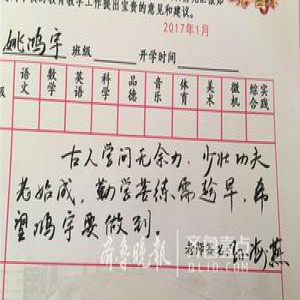 教育教学工作提出宝贵的意见和建议。
2017年1月
姚鸿宇 班级 开学时间
级 语文 数学 英语 科学 品德 音乐 体育 美术 微机 综合实践
古人学问无余力，少壮功夫
老始成，勤学苦练需趁早，希
望鸿宇要做到。
老师签名：
齐鲁晚报